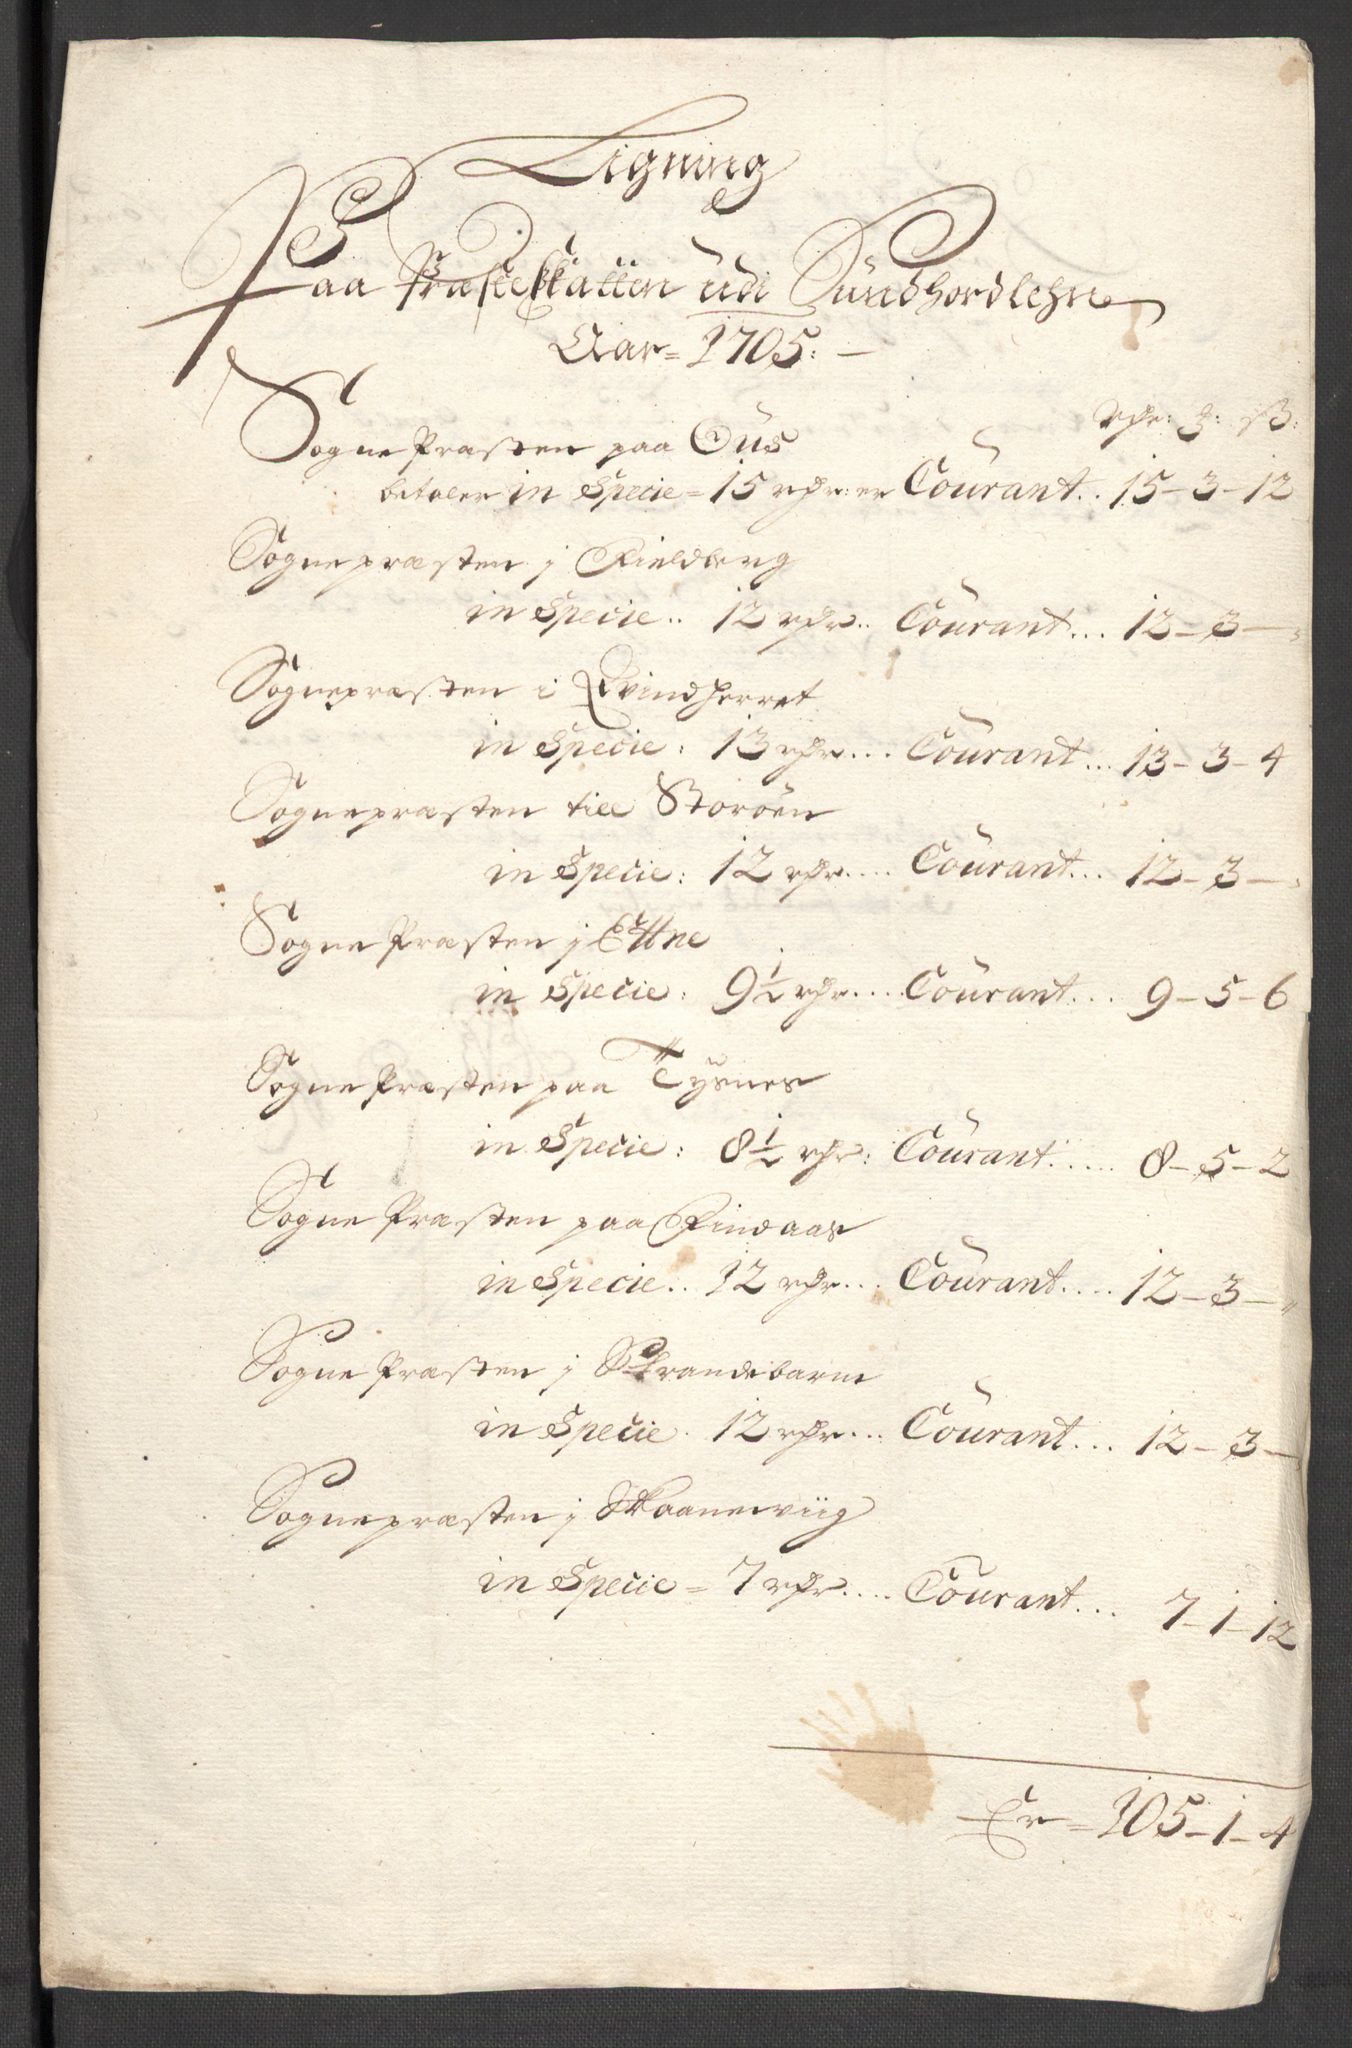 Ligning
Paa Præsteskatten udi Sundhordlehn
Aar= 1705:—
Rdr: ȝ: ß:
Sogne Præsten paa Ous
betaler in Specie= 15 rdr: er Courant.. 15–3–12
Sognepræsten j Fieldberg
in Specie.. 12 rdr.. Courant... 12–3—"
Sognepræsten i Qvindherret
in Specie: 13 rdr.... Courant... 13–3–4
Sognepræsten till Storøen
in Specie: 12 rdr.... Courant... 12–3—"
Sogne Præsten j Ettne
in Specie: 9½ rdr.... Courant.... 9–5–6
Sogne Præsten paa Tÿsnes
in Specie: 8½ rdr: Courant..... 8–5–2
Sogne Præsten paa Findaas
in Specie.. 12 rdr... Courant.... 12–3—"
Sogne Præsten j Strandebarm
in Specie. 12 rdr.... Courant... 12–3—
Sognepræsten j Skaanneviig
in Specie= 7 rdr.... Courant... 7–1–12
Er= 105–1–4